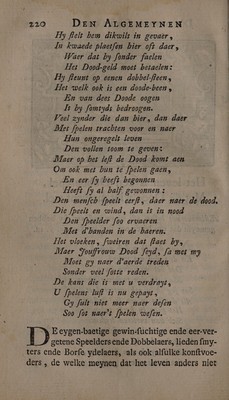 220 DEN ALGEMEYNEN
Hy stelt hem dikwils in gevaer,
In kwaede plaetsen hier oft daer,
Waer dat by sonder faelen
Het Dood-geld moet betaelen:
Hy steunt op eenen dobbel-steen,
Het welk ook is een doode-been,
En van dees Doode oogen
It hy somtyds bedroogen.
Veel zynder die dan hier, dan daer
Met spelen trachten voor en naer
Hun ongeregelt leven
Den vollen toom te geven:
Maer op het lest de Dood komt aen
Om ook met hun te spelen gaen,
En eer sy heeft begonnen
Heeft sy al half gewonnen:
Den mensch speelt eerst, daer naer de dood.
Die speelt en wind, dan is in nood
Den speelder soo ervaeren
Met d'handen in de haeren.
Het vloeken, sweiren dat staet by,
Maer Jouffrouw Dood seyd, sa met my
Moet gy naer d'aerde treden
Sonder veel sotte reden.
De kans die is met u verdrayt,
U spelens lust is nu gepayt,
Gy sult niet meer naer desen
Soo sot naer't spelen wesen.
DE eygen-baetige gewin-suchtige ende eer-ver-
getene Speelders ende Dobbelaers, lieden smy-
ters ende Borse ydelaers, als ook alsulke konstvoe-
ders, de welke meynen dat het leven anders niet